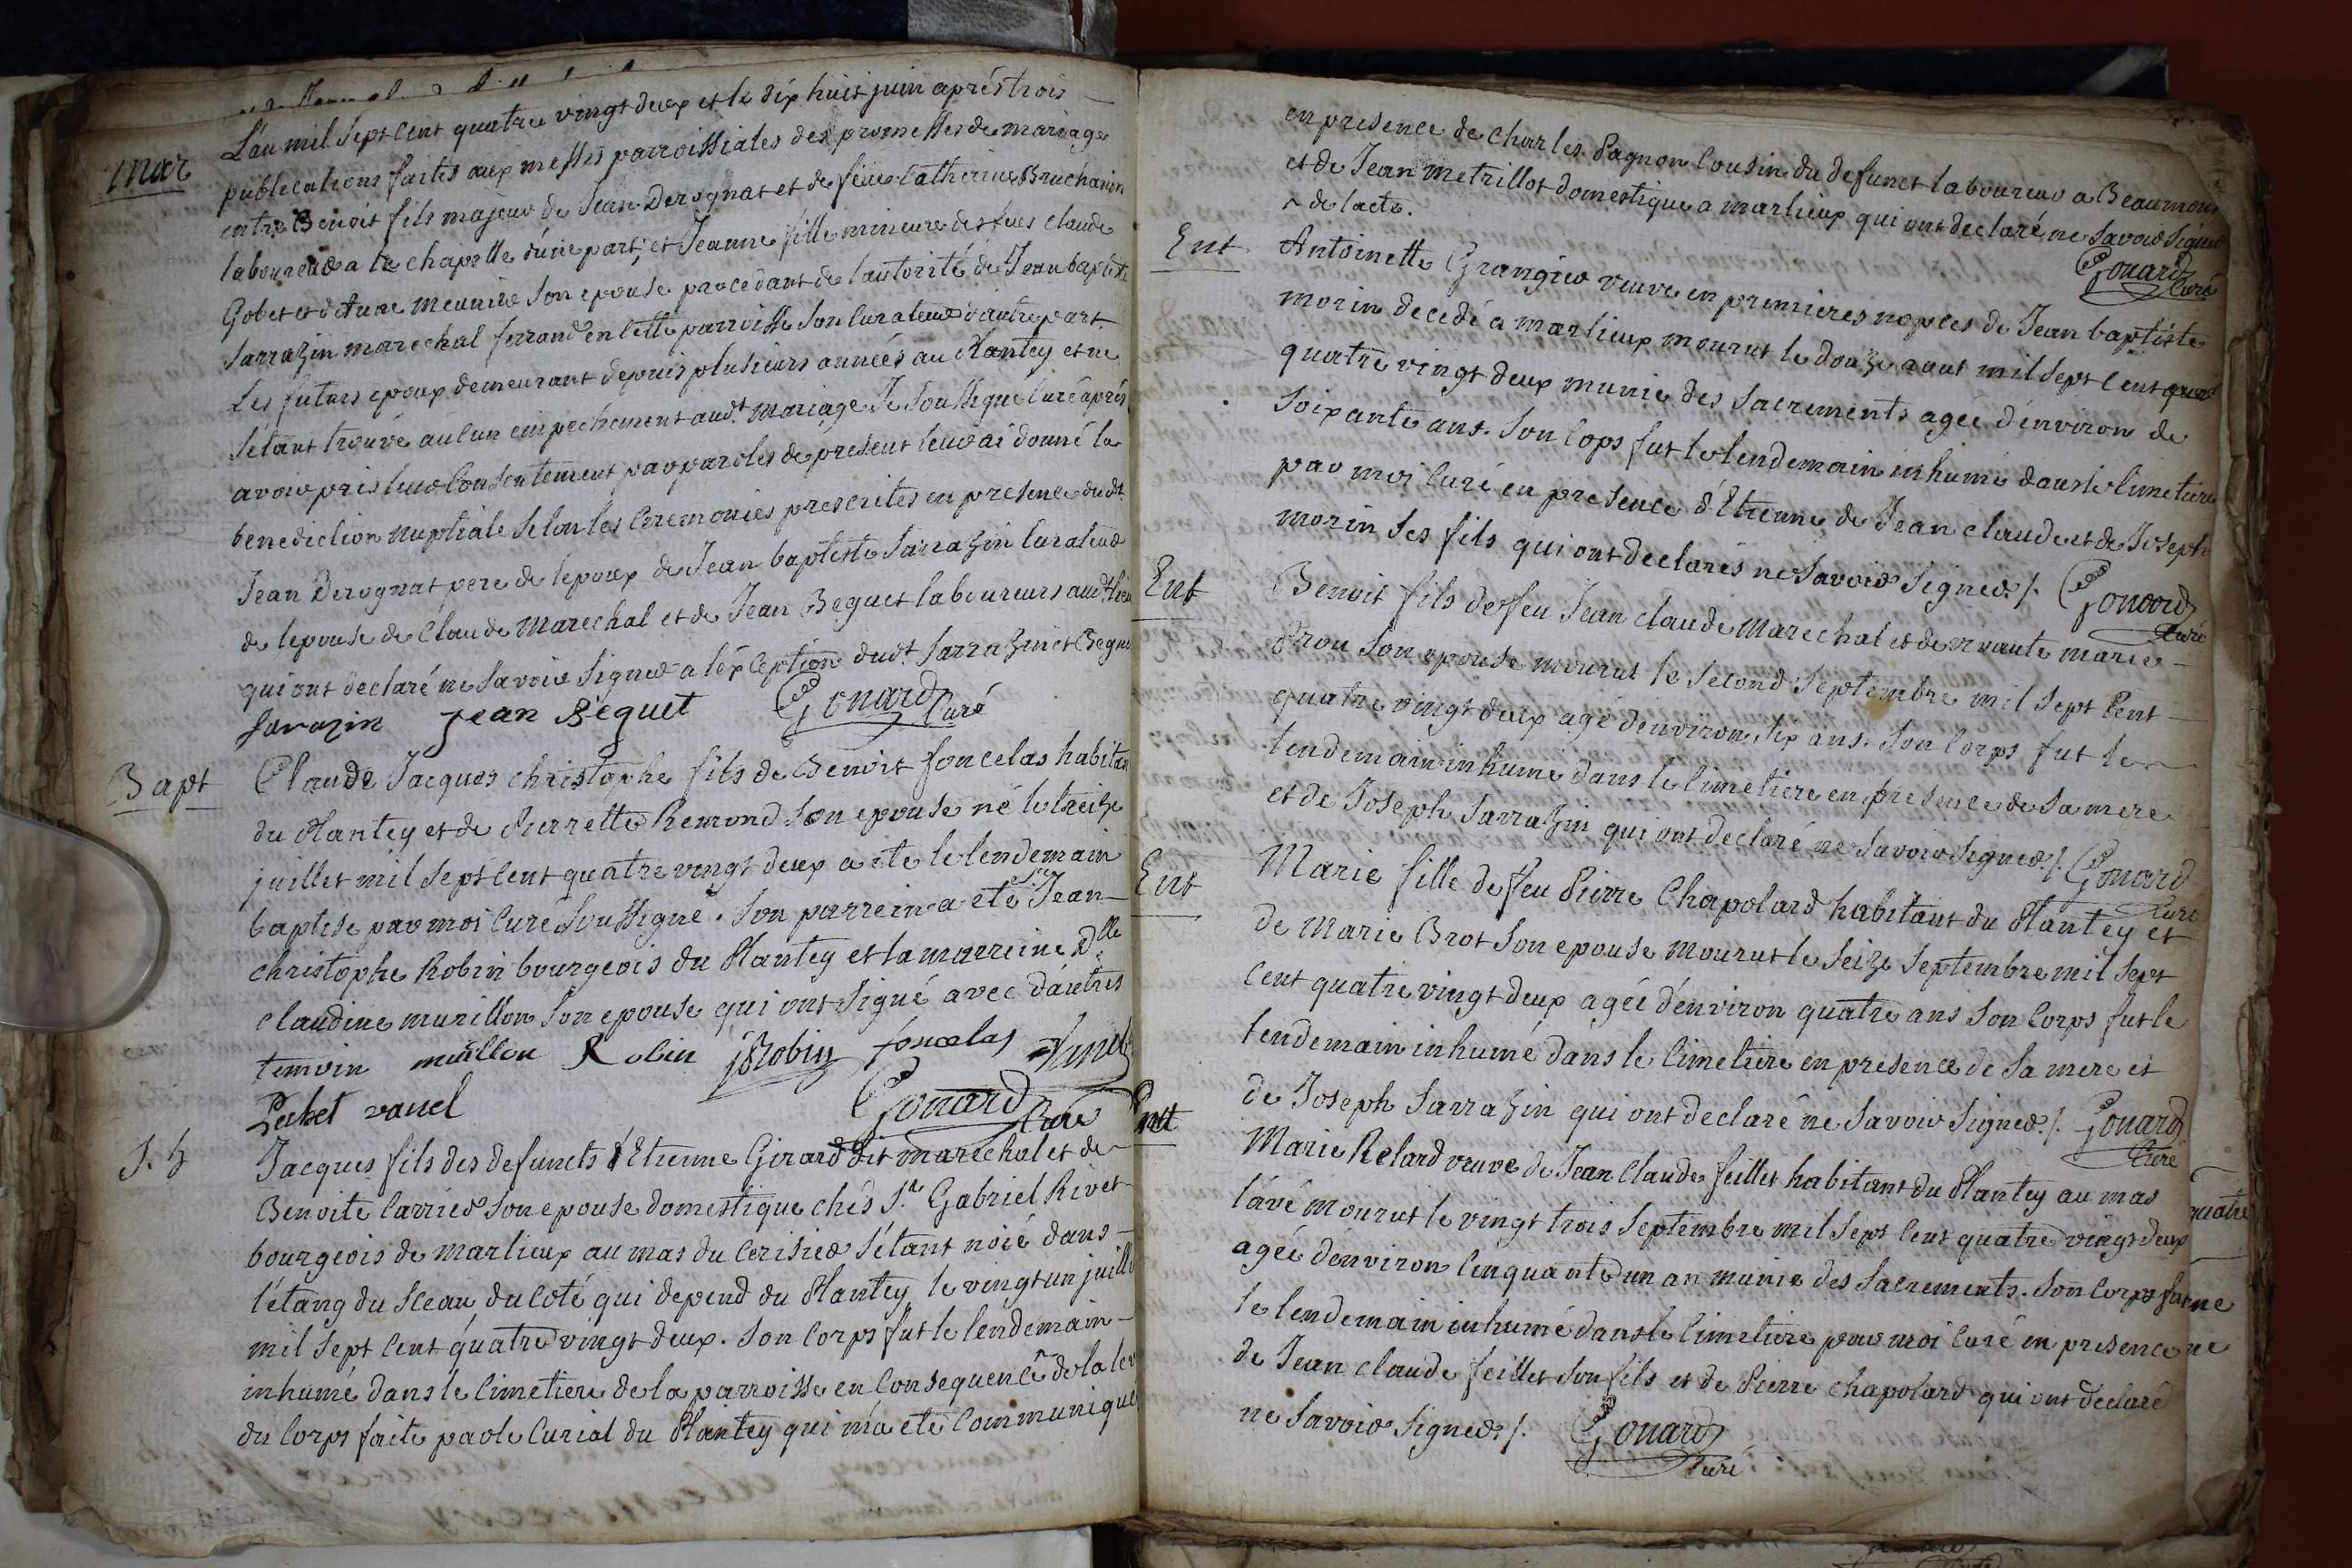 mar
L'an mil sept cent quatre vingt deux et le dix huit juin aprés trois
publications faites aux messes parroissiales des promesses de mariage
entre Benoit fils majeur de Jean Derognat et de feue Catherine Bruchanin
laboureur a la chapelle d'une part, et Jeanne fille mineure des feus claude
Gobet et d'Anne meunier son epouse procedant de l'autorité de Jean baptiste
Sarrazin marechal ferrand en cette parroisse son curateur d'autre part.
Les futurs epoux demeurant depuis plusieurs années au Plantey et ne
s'etant trouvé aucun empechement audt mariage Je soussigné curé aprés
avoir pris leur consentement par paroles de présent leur ai donné la
benediction nuptiale selon les ceremonies prescrites en presence dudt
Jean Derognat pere de l'epoux de Jean baptiste Sarrazin curateur
de l'epouse de Claude Marechal et de Jean Beguet laboureurs audt lieu
qui ont declaré ne savoir signer a l'exception dudt Sarrazin et Beguet
Sarazin Jean Béguet Gonard Curé
Bapt
Claude Jacques christophe fils de Benoit foncelas habitan
du Plantey et de Pierrette Remond son epouse né le treize
juillet mil sept cent quatre vingt deux a ete le lendemain
baptise par moi curé soussigné. Son parrein a eté Sr Jean
christophe Robin bourgeois du Plantey et la marreine Dlle
claudine murillon son epouse qui ont signé avec d'autres
temoin murillon Robin JRobin foncelas
Pechet vanel Gonard Curé
S. h
Jacques fils des defuncts d'Etienne Girard dit marechal et de
Benoite Carrier son epouse domestique chés Sr Gabriel Rivet
bourgeois de marlieux au mas du Cerisier s'étant noié dans
l'étang du Sceau du coté qui depend du Plantey le vingt un juille
mil sept cent quatre vingt deux. Son corps fut le lendemain
inhumé dans le cimetiere de la parroisse en consequence de la lev
du corps faite par le curial du Plantey qui m'a eté communique
en presence de charles Pagnon Cousin du defunct laboureur a Beaumont
et de Jean metrillot domestique a marlieux qui ont declaré ne savoir signer
de lacte.
Gonard Curé
Ent
Antoinette Grangier veuve en premieres nopces de Jean baptiste
morin decedé a marlieux mourut le douze aout mil sept cent
quatre vingt deux munie des sacrements agée d'environ de
soixante ans. Son Cops fut le lendemain inhumé dans le cimetiere
par moi curé en presence d'Etienne de Jean claude et de Joseph
morin ses fils qui ont declarés ne savoir signer /. Gonard Curé
Ent
Benoit fils de feu Jean claude Marechal et de vivante marie
Brou son epouse mourut le second septembre mil sept cent
quatre vingt deux agé d'environ six ans. Son corps fut le
lendemain inhumé dans le cimetiere en presence de sa mere
et de Joseph Sarrazin qui ont declaré ne savoir signer /. Gonard Curé
Ent
Marie fille de feu Pierre Chapolard habitant du Plantey et
de Marie Brot son epouse mourut le seize septembre mil sept
cent quatre vingt deux agée d'environ quatre ans Son corps fut le
lendemain inhumé dans le cimetiere en presence de sa mere et
de Joseph Sarrazin qui ont declaré ne savoir signer /. Gonard Curé
Ent
Marie Relard veuve de Jean Claude feillet habitant du Plantey au mas
l'avé mourut le vingt trois septembre mil sept cent quatre vingt deux
agée d'environ cinquante un an munie des sacrements. Son corps fut
le lendemain inhumé dans le cimetiere par moi curé en presence
de Jean claude feillet son fils et de Pierre chapolard qui ont declaré
ne savoir signer /. Gonard Curé
quatre